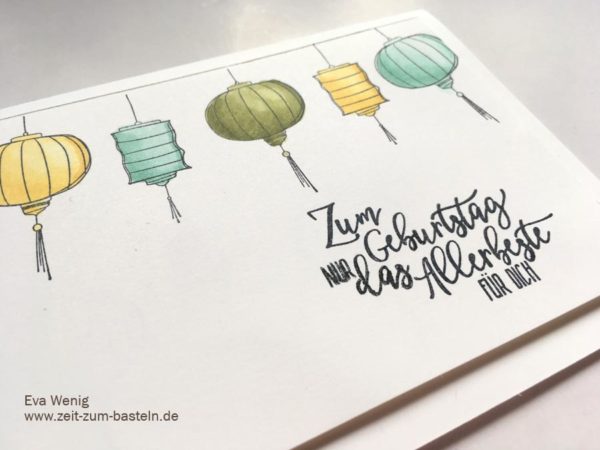 Zum
Geburtstag
NUR das Allerbeste
FÜR DICH
Eva Wenig
www.zeit-zum-basteln.de